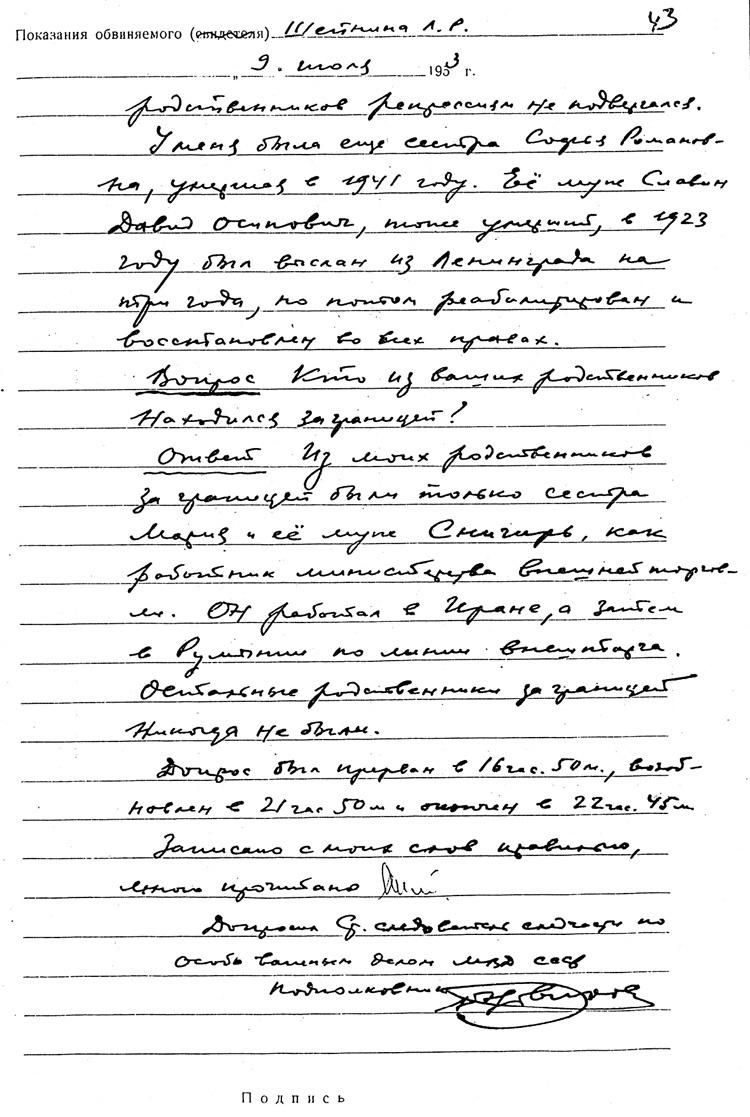 43
Показания обвиняемого (свидетеля) Шейнина Л. Р.
„9. июля 1953 г.
родственников репрессиям не подвергался.
У меня была еще сестра Софья Романов-
на, умершая в 1941 году. Её муж Славин
Давид Осипович, тоже умерший, в 1923
году был выслан из Ленинграда на
три года, но потом реабилитирован и
восстановлен во всех правах.
Вопрос Кто из ваших родственников
находился за границей?
Ответ Из моих родственников
за границей были только сестра
Мария и её муж Снигирь, как
работник министерства внешней торгов-
ли. Он работал в Иране, а затем
в Румынии по линии внешторга.
Остальные родственники за границей
никогда не были.
Допрос был прерван в 16 час. 50 м., возоб-
новлен в 21 час 50 м и окончен в 22 час. 45 м
Записано с моих слов правильно,
мною прочитано
Допросил Ст. следователь следчасти по
особо важным делам МВД СССР
подполковник
Подпись